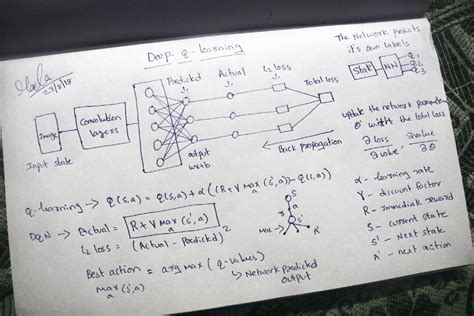 Deep - Q - Learning
The Network predicts
it's own labels
Mala
23/3/18
Predicted
Actual
L2 loss
Total loss
State
NN
Q1
Q2
Q3
Image
Convolution
layers
Input state
output
Back propagation
update the network parameters
θ' with the total loss
∂ loss
∂ value
∂ value
∂θ
Q-learning → Q(s,a) = Q(s,a) + α((R+γ max (s',a)) - Q(s,a))
a
DQN → Actual = R + γ max (s',a)
a
L2 loss = (Actual - Predicted)²
Best action = arg max (Q-values)
max (s,a)
a
↳ Network predicted
output
S
a
Max
S'
A'
α - learning rate
γ - discount factor
R - Immediate reward
S - current state
S' - Next state
A' - next action